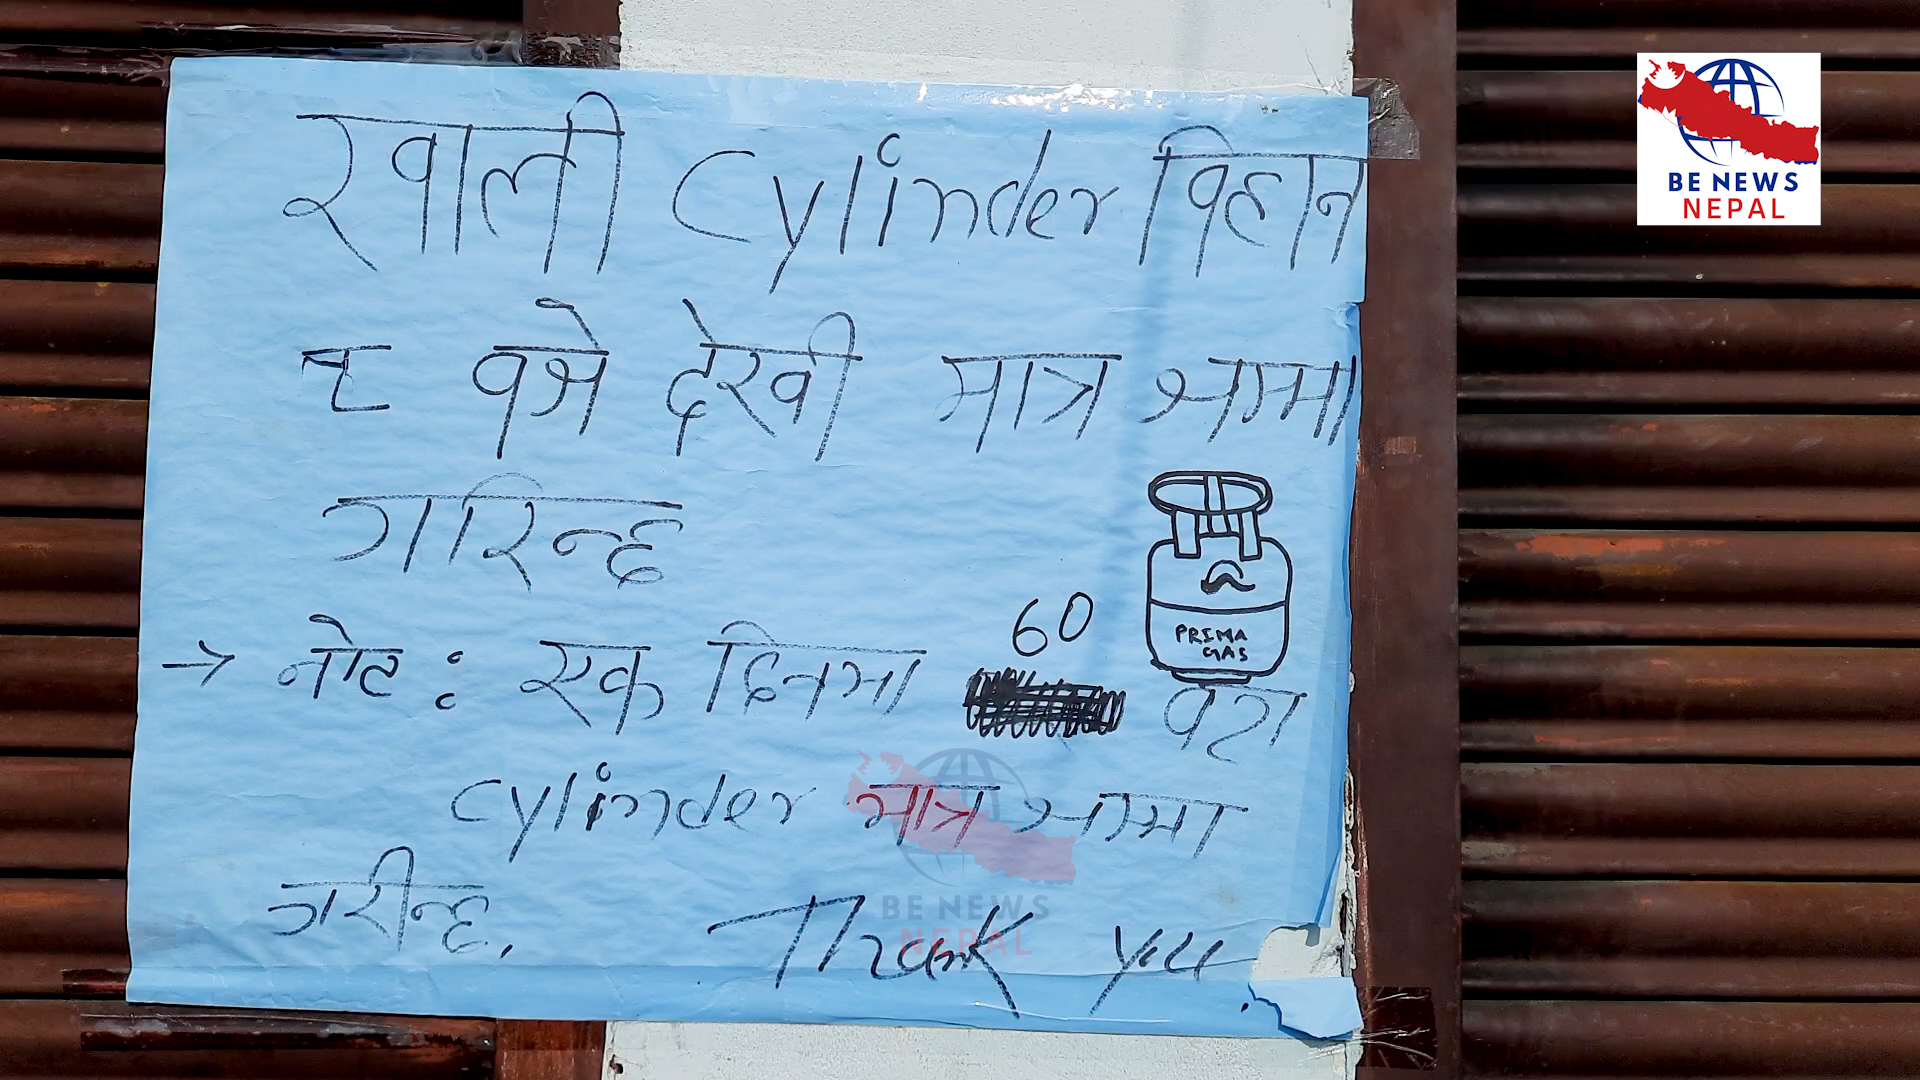 खाली Cylinder विहान
८ वजे देखी मात्र जम्मा
गरिन्छ
PRIMA
GAS
60
→ नोट : एक दिनमा वटा
Cylinder मात्र जम्मा
गरीन्छ.
Thank you.
BE NEWS
NEPAL
BE NEWS
NEPAL